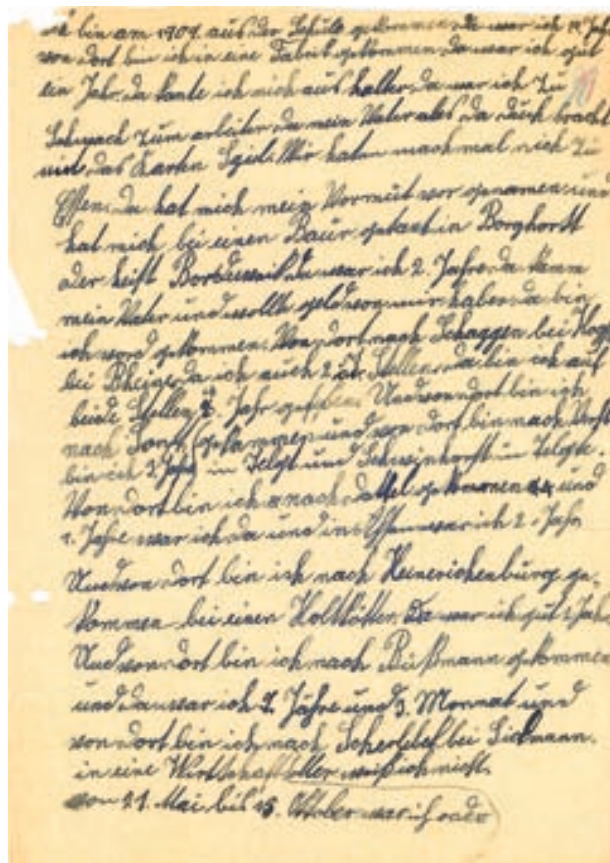 bin am 1909. aus der Schule gekommen da war ich 14 Jahr
von dort bin ich in eine Fabrik gekommen da war ich gut
ein Jahr da konte ich nich aus halten da war ich zu
Schwach zum arbeiten da mein Vater ales da durch bracht
mit das Karten Spiel. Wir haten machmal nich zu
Essen. da hat mich mein Vormut vor genamen und
hat mich bei einen Baur getaet in Borghorst
oder heist da war ich 2. Jahre da kamm
mein Vater und wollte geld von mir haben da bin
ich word gekommen. Von dort nach bei
bei Rheine da ich auch 2 Stellen da bin ich auf
beide Stellen Jahr Und von dort bin ich
nach gekommen und von dort bin nach
bin ich Jahr in Telgt und in Telgte.
Von dort bin ich nach dattel gekommen und
1. Jahre war ich da und in Essen war ich 2. Jahr
Und von dort bin ich nach Heinerichenburg ge-
kommen bei einen Holtkötter. Da war ich gut Jahr
Und von dort bin ich nach Büßmann gekommen
und da war ich 2. Jahre und 3. Monnat und
von dort bin ich nach Scherlebek bei
in eine Wirtschaft weiß ich nicht.
von 11. Mai bis 15. Oktober war ich